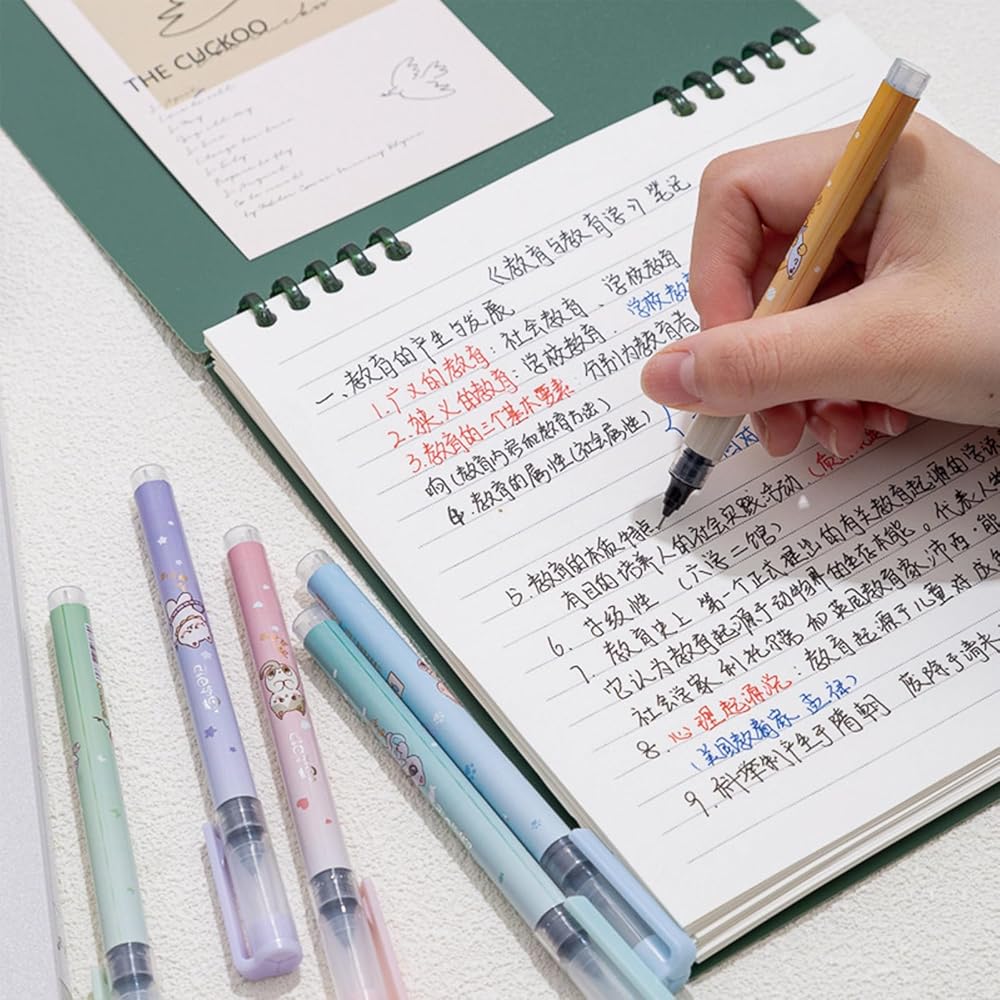 THE CUCKOO
《教育与教育学》笔记
一、教育的产生与发展
1.广义的教育：社会教育、学校教育
2.狭义的教育：学校教育. 学校教
3.教育的三个基本要素：分别为教育者
响(教育内容和教育方法)
4.教育的属性(社会属性)
5.教育的本质特点
有目的培养人的社会实践活动
6.阶级性 (六学二馆)
7.教育史上第一个正式提出的有关教育起源的学说
它认为教育起源于动物界的生存本能。代表人物
社会学家利托尔诺和英国教育家沛西·能
8.心理起源说：教育起源于儿童对成
(美国教育家 孟禄)
9.科举制产生于隋朝 废除于清末